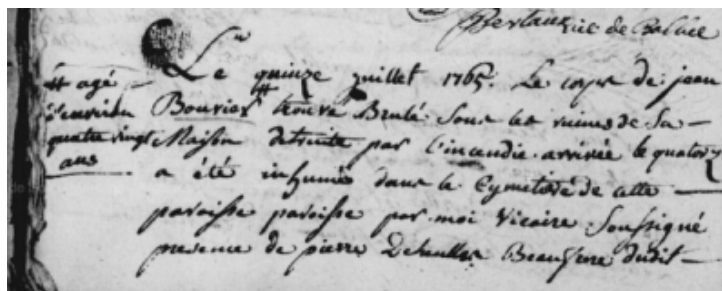 Bertaux vic de Bollée
Le quinze juillet 1765. Le corps de jean
Bouvier # trouvé Brulé sous les ruines de sa
Maison detruite par l'incendie arrivée le quatorz
a été inhumé dans le Cymetiere de cette
paroisse paroisse par moi Vicaire Soussigné
presence de pierre Beaufrere dudit
# agé
d'environ
quatre vingt
ans